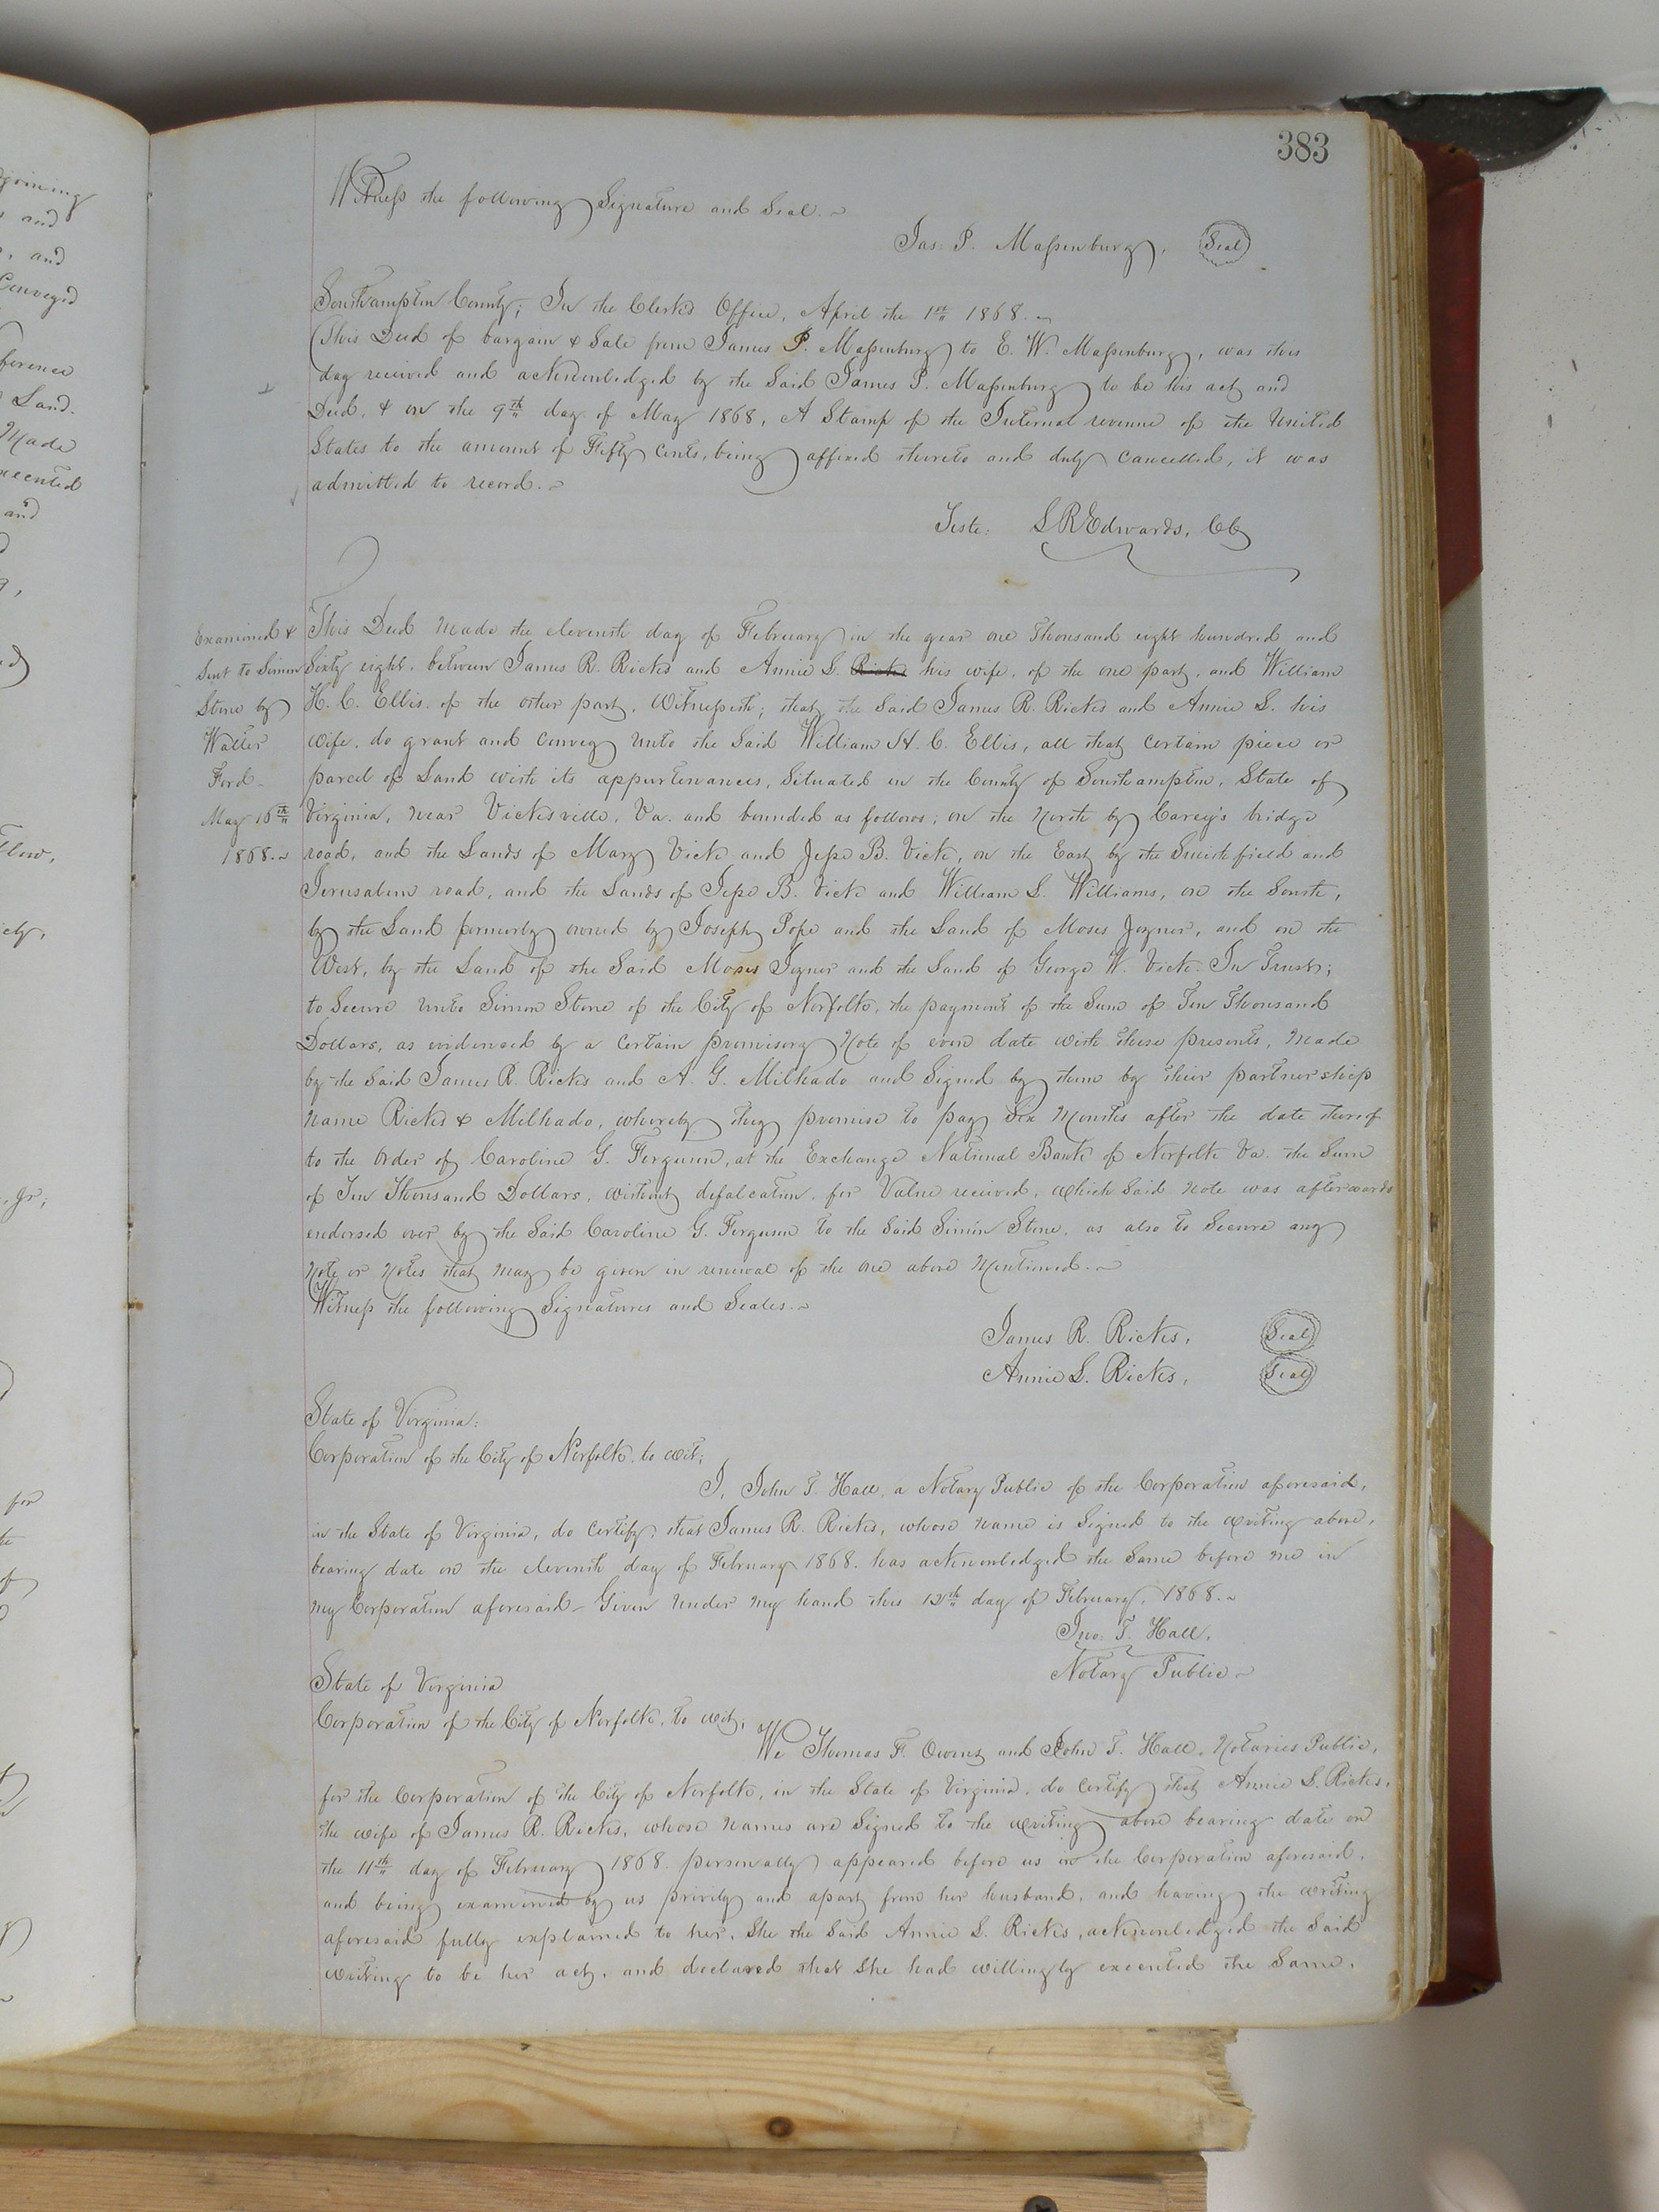 383
Witness the following Signature and Seal.
Jas: P. Massenburg, Seal
Southampton County; In the Clerks Office, April the 1st 1868.
This Deed of bargain & Sale from James P. Massenburg to E. W. Massenburg, was this
day received and acknowledged by the Said James P. Massenburg to be his act and
Deed, & on the 9th day of May 1868, A Stamp of the Internal revenue of the United
States to the amount of Fifty Cents, being affixed thereto and duly Cancelled, it was
admitted to record.
Teste: L R Edwards, CC
Examined &
Sent to Simon
Stone by
Walter
Ford
May 16th
1868.
This Deed Made the eleventh day of February in the year one Thousand eight hundred and
Sixty eight, between James R. Ricks and Annie L. Ricks his wife, of the one part, and William
H. C. Ellis, of the other part, Witnesseth; that the Said James R. Ricks and Annie L. his
wife, do grant and Convey Unto the Said William H. C. Ellis, all that Certain piece or
parcel of Land with its appurtenances, Situated in the County of Southampton, State of
Virginia, Near Vicksville, Va. and bounded as follows; on the North by Carey's bridge
road, and the Lands of Mary Vick and Jesse B. Vick, on the East by the Smithfield and
Jerusalem road, and the Lands of Jesse B. Vick and William L. Williams, on the South,
by the Land formerly owned by Joseph Pope and the Land of Moses Joyner, and on the
West, by the Land of the Said Moses Joyner and the Land of George W. Vick. In Trust;
to Secure Unto Simon Stone of the City of Norfolk, the payment of the Sum of Ten Thousand
Dollars, as evidenced by a Certain promisory Note of even date with these presents, Made
by the Said James R. Ricks and A. G. Milhado and Signed by them by their partnership
Name Ricks & Milhado, whereby they promise to pay Six Months after the date thereof
to the Order of Caroline G. Ferguson, at the Exchange National Bank of Norfolk Va. the Sum
of Ten Thousand Dollars, without defalcation, for Value received, which Said Note was afterwards
endorsed over by the Said Caroline G. Ferguson to the Said Simon Stone, as also to Secure any
Note or Notes that May be given in renewal of the one above Mentioned.
Witness the following Signatures and Seales.
James R. Ricks, Seal
Annie L. Ricks, Seal
State of Virginia:
Corporation of the City of Norfolk, to wit;
I, John T. Hall, a Notary Public of the Corporation aforesaid,
in the State of Virginia, do Certify, that James R. Ricks, whose Name is Signed to the writing above,
bearing date on the eleventh day of February 1868. has acknowledged the Same before me in
My Corporation aforesaid - Given Under My hand this 12th day of February, 1868.
Jno: T. Hall,
Notary Public
State of Virginia
Corporation of the City of Norfolk, to wit;
We Thomas F. Owens and John T. Hall, Notaries Public,
for the Corporation of the City of Norfolk, in the State of Virginia, do Certify that Annie L. Ricks,
the wife of James R. Ricks, whose Names are Signed to the writing above bearing date on
the 11th day of February 1868. personally appeared before us in the Corporation aforesaid,
and being examined by us privily and apart from her husband, and having the writing
aforesaid fully explained to her, She the Said Annie L. Ricks, acknowledged the Said
writing to be her act, and declared that She had willingly executed the Same,